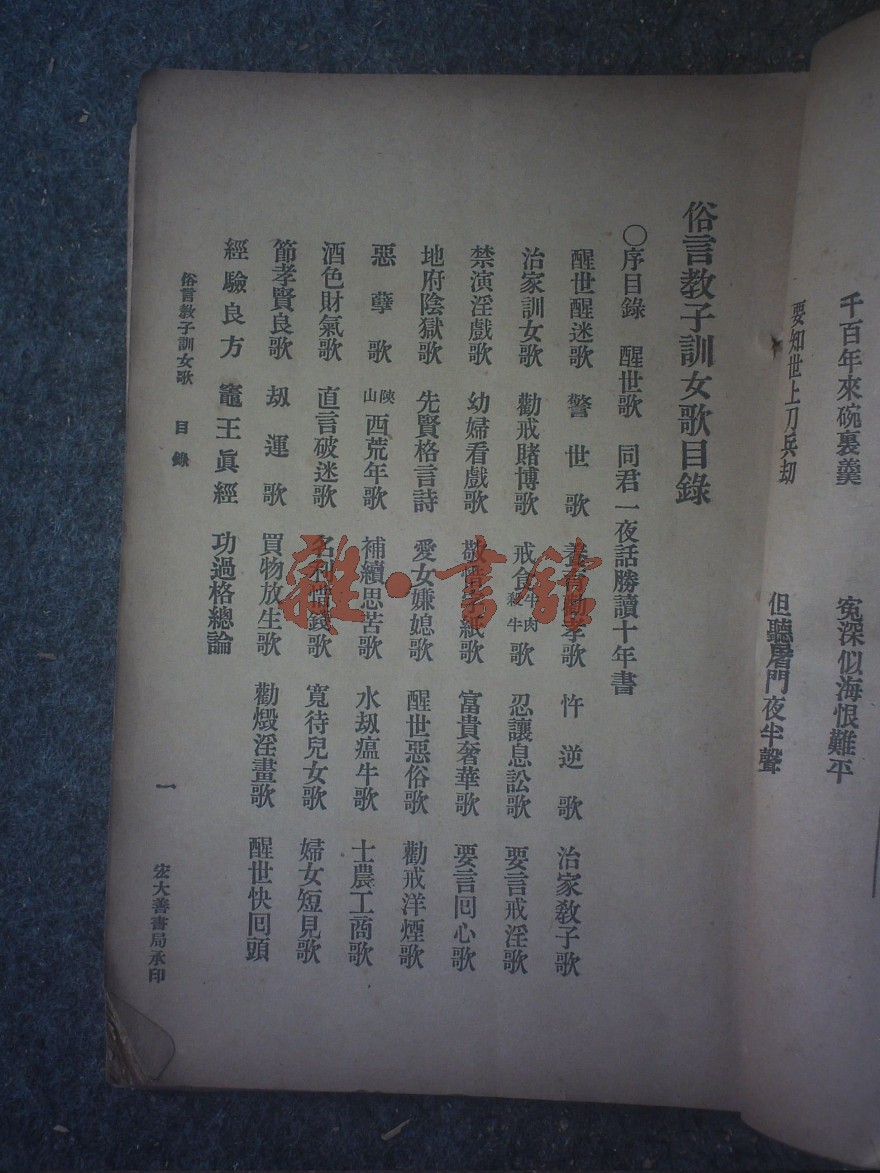 千百年來碗裏羹　冤深似海恨難平
要知世上刀兵劫　但聽屠門夜半聲
俗言教子訓女歌目錄
〇序目錄　醒世歌　同君一夜話勝讀十年書
醒世醒迷歌　警世歌　養育勸孝歌　忤逆歌　治家教子歌
治家訓女歌　勸戒賭博歌　戒食牛肉殺牛歌　忍讓息訟歌　要言戒淫歌
禁演淫戲歌　幼婦看戲歌　敬惜字紙歌　富貴奢華歌　要言囘心歌
地府陰獄歌　先賢格言詩　愛女嫌媳歌　醒世惡俗歌　勸戒洋煙歌
惡孽歌　山陝西荒年歌　補續思苦歌　水刼瘟牛歌　士農工商歌
酒色財氣歌　直言破迷歌　名利惜錢歌　寬待兒女歌　婦女短見歌
節孝賢良歌　刼運歌　買物放生歌　勸燬淫畫歌　醒世快囘頭
經驗良方　竈王眞經　功過格總論
俗言教子訓女歌　目錄　一　宏大善書局承印
雜·書館